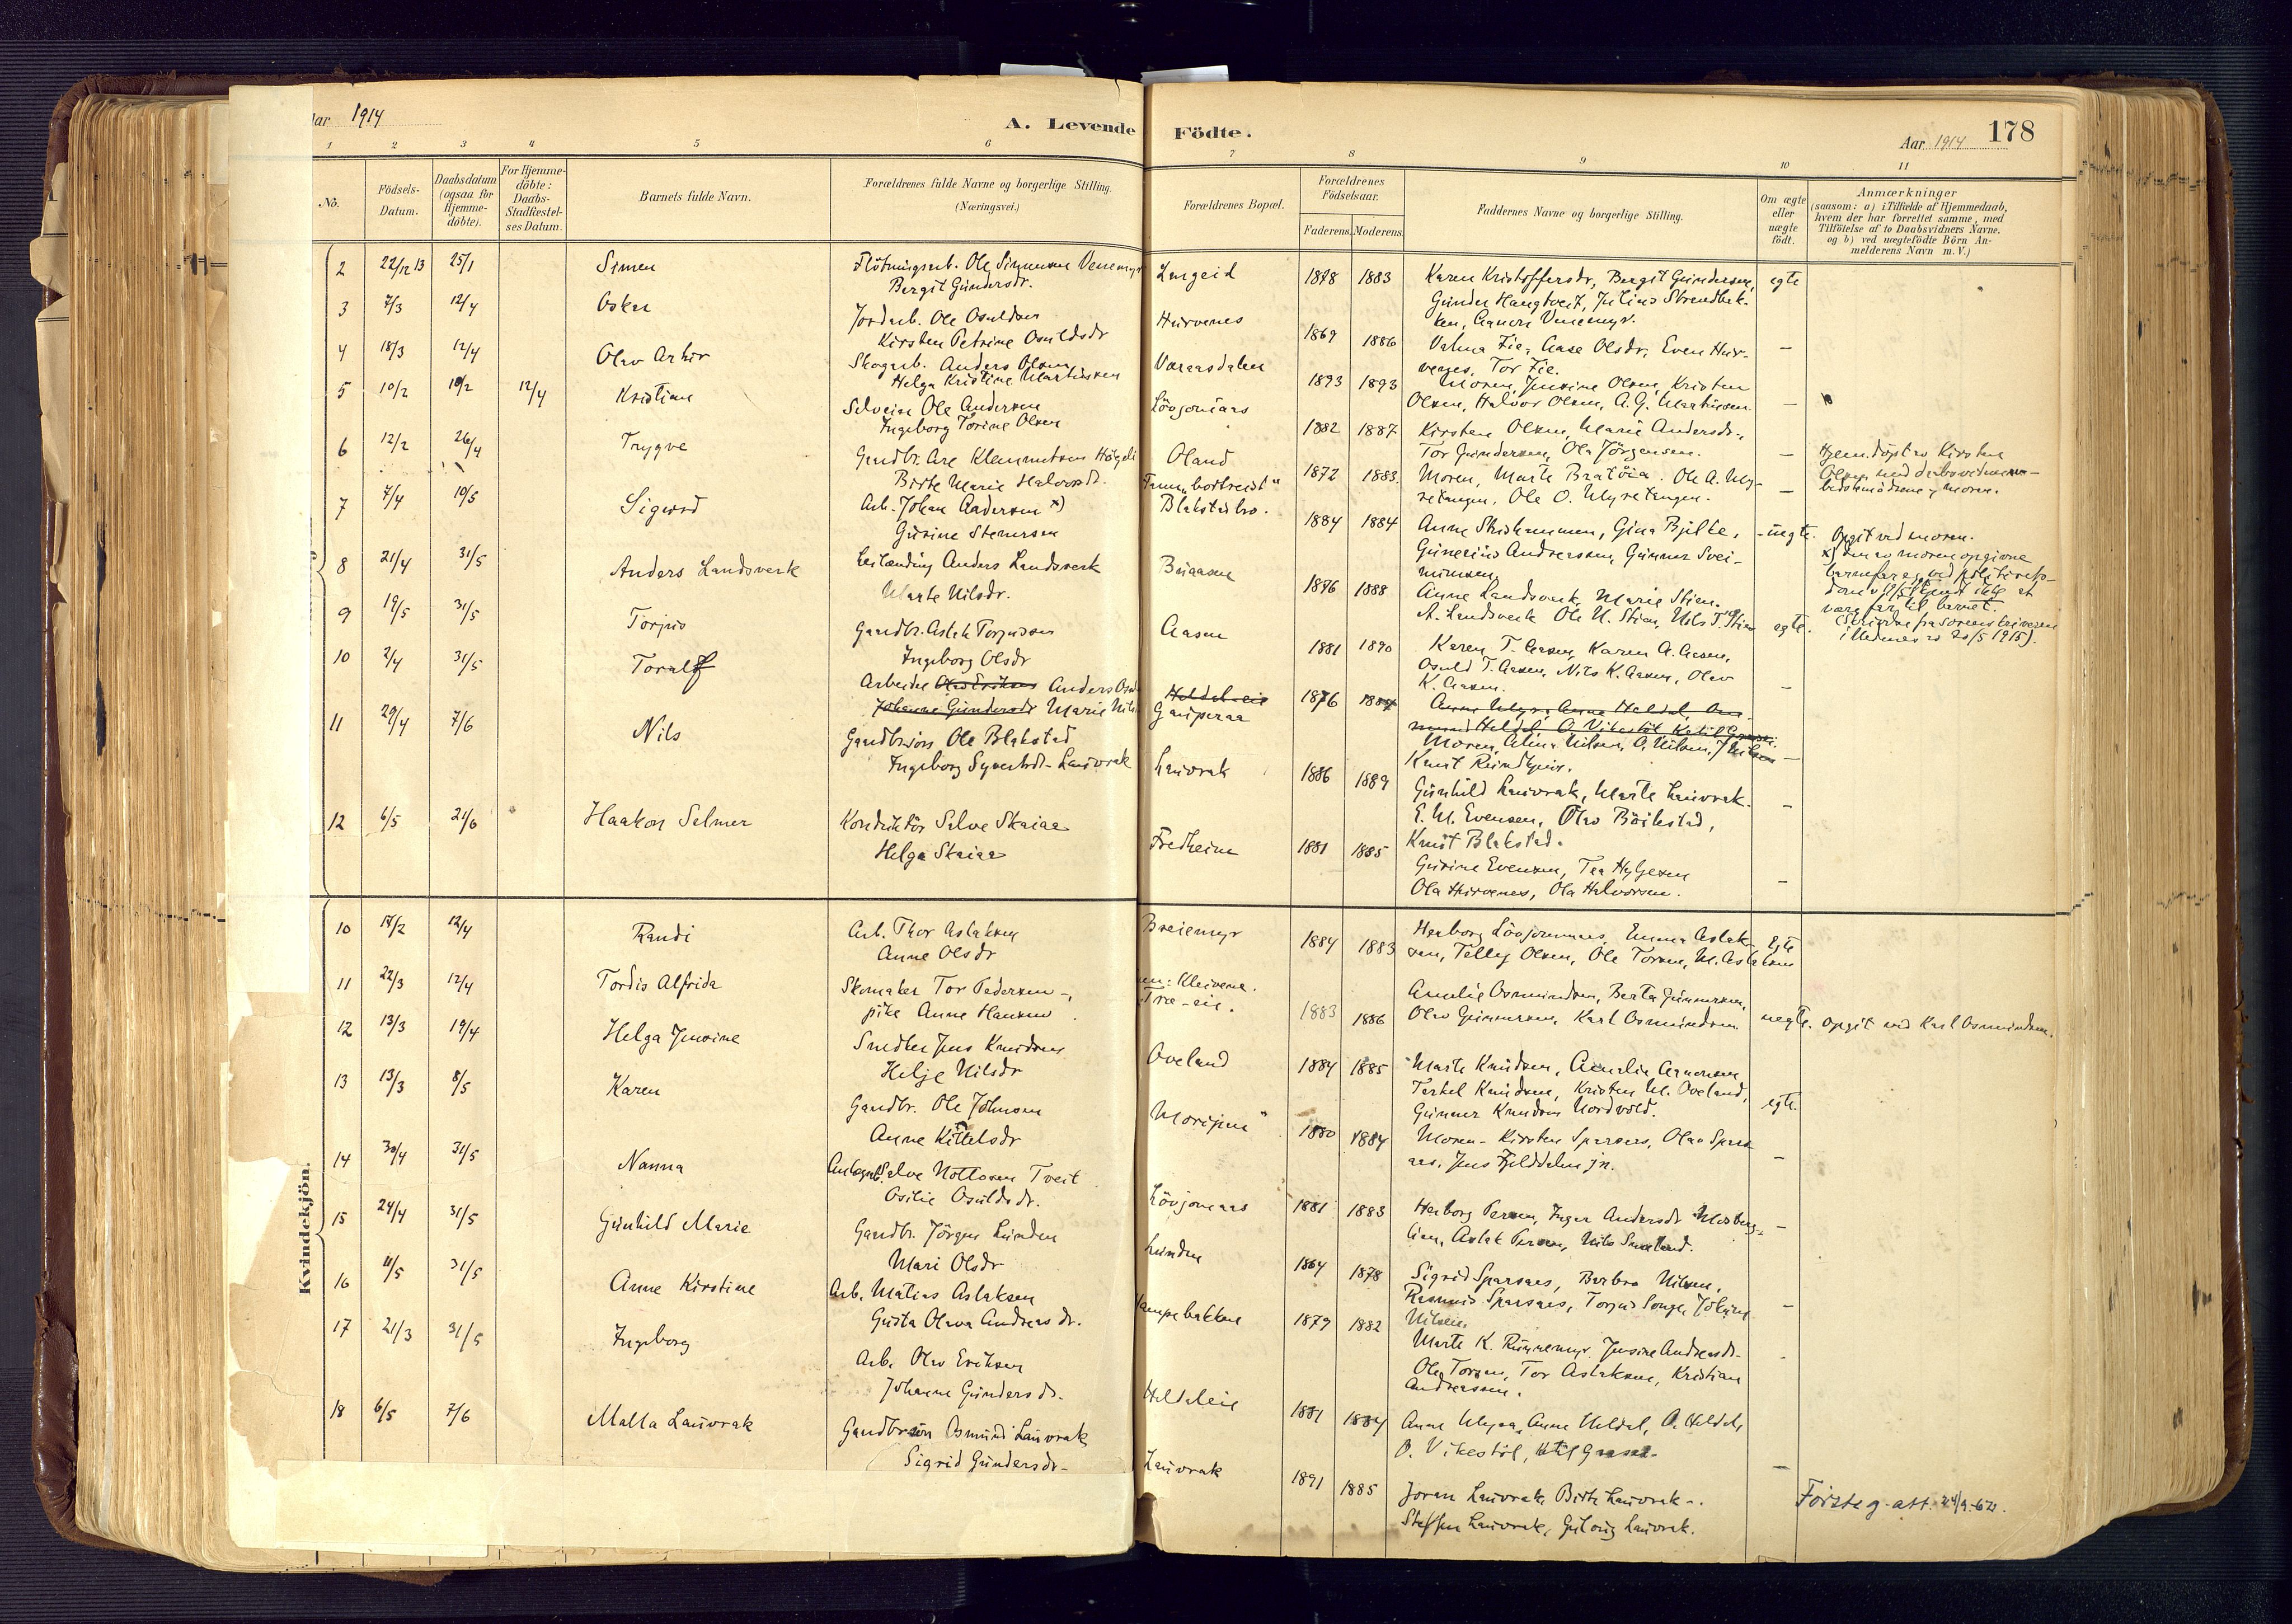 Aar 1914
A. Levende Födte.
Aar 1914 178
1 2 3 4 5 6 7 8 9 10 11
No.
Födsels-Datum.
Daabsdatum (ogsaa för Hjemme-döbte).
For Hjemme-döbte: Daabs-Stadfæstel-ses Datum.
Barnets fulde Navn.
Forældrenes fulde Navne og borgerlige Stilling.
(Næringsvei.)
Forældrenes Bopæl.
Forældrenes Födselsaar.
Faderens. Moderens.
Faddernes Navne og borgerlige Stilling.
Om ægte eller uægte födt.
Anmærkninger
(saasom: a) i Tilfælde af Hjemmedaab,
hvem der har forrettet samme, med
Tilföielse af to Daabsvidners Navne.
og b) ved uægtefödte Börn An-
melderens Navn m. V.)
2 22/12 13 25/1 Simen Flötningsarb. Ole Simonsen Venemyr
Bergit Gundersdr. Engeid 1878 1883 Karen Kristoffersdr, Bergit Gundersen, egte
Gunder Haugtveit, Julius Strendbak-
ken, Aanon Venemyr.
3 7/3 12/4 Oskar Jordarb. Ole Osuldsen
Kirsten Petrine Osuldsdr Hurvenes 1869 1886 Valma Fie, Aase Olsdr, Even Hur- —
venes, Tor Fie.
4 18/3 12/4 Olav Artur Skogarb. Anders Olsen
Helga Kristine Martinsen Varaasdalen 1893 1893 Moren, Jensine Olsen, Kristen
Olsen, Halvor Olsen, A. G. Martinsen. —
5 10/2 10/2 12/4 Kristian Selveier Ole Andersen
Ingeborg Torine Olsen Lövjomaas 1882 1887 Kirsten Olsen, Marie Andersdr.,
Tor Gundersen, Ola Jörgensen. — Hjemdöpt av Kirsten
Olsen, med daabsvidnerne
bedstemödrene, moren.
6 12/2 26/4 Trygve Gaardbr. Are Klemmetsen Högeli
Birte Marie Halvorsdr. Oland 1872 1883 Moren, Marte Bratöia, Ole A. My-
retangen, Ole O. Myretangen. —
7 7/4 10/5 Sigurd Arb. Johan Andersen x)
Gurine Stenersen Faren "bortreist"
Blakstadbro. 1884 1884 Anne Skrishammen, Gina Bjelke, uegte. Opgit ved moren.
Gunerius Andreassen, Gunnar Svei-
nunsen. x) Den av moren opgivne
barnefar er ved politirets-
dom av 19/5 15 kjendt ikke at
være far til barnet.
(Skrivelse fra sorenskriveren
i Nedenes av 20/5 1915).
8 21/4 31/5 Anders Landsverk Leilænding Anders Landsverk
Marte Nilsdr. Buaasen 1876 1888 Anne Landsverk, Marie Stien.
A. Landsverk Ole N. Stien, Nils T. Stien egte.
9 19/5 31/5 Torjus Gaardbr. Aslak Torjussen
Ingeborg Olsdr Aasen 1881 1890 Karen T. Aasen, Karen A. Aasen,
Osuld T. Aasen, Nils K. Aasen, Olav
K. Aasen. —
10 2/4 31/5 Toralf Arbeider Olav Eriksen Anders Osuldsen
Johanne Gundersdr Marie Nils Heldaleie
Gauperaa 1876 1884 Anne Myra, Anne Heldal, Aas-
mund Heldal, O. Vikestöl
Moren, Alina Nilsen, O. Nilsen, J Nilsen —
Knut
11 29/4 7/6 Nils Gaardbr.sön Ole Blakstad
Ingeborg Syvertsdr. Lauvrak Lauvrak 1886 1889 Gunhild Lauvrak, Marte Lauvrak.
E. M. Evensen, Olav Böilestad, —
Knut Blakstad.
12 6/5 21/6 Haakon Selmer Konduktör Salve Skaiaa
Helga Skaiaa Fredheim 1881 1885 Gurine Evensen, Tea Helgesen
Ola Hurvenes, Ola Halvorsen. —
Kvindekjön.
10 17/2 12/4 Randi Arb. Thor Aslaksen
Anne Olsdr Breiemyr 1884 1883 Herborg Lövjommaas, Emma Aslak- Egte
sen, Tellef Olsen, Ole Torsen, M. Aslaksen
11 22/3 12/4 Tordis Alfrida Skomaker Tor Pedersen -,
pike Anne Hansen Kleivene.
Træ-eie. 1883 1886 Amelie Osmundsen, Berta Gunnersen,
Olav Gunnersen, Karl Osmundsen uegte. Opgit ved Karl Osmundsen.
12 13/3 19/4 Helga Jensine Snedker Jens Knudsen
Helje Nilsdr Oveland 1884 1885 Marte Knudsen, Amalie Aanonsen,
Terkel Knudsen, Kristen M. Oveland, egte.
Gunnar Knudsen Nordvold.
13 13/3 8/5 Karen Gaardbr. Ole Johnsen
Anne Kittelsdr 1880 1884 Moren - Kirsten Sparsaas, Olav Spars-
aas, Jens Fjelddalen jr. —
14 30/4 31/5 Nanna Salve Nottosen Tveit
Osilie Osuldsdr. Lövjomaas 1881 1883 Herborg Persen, Inger Andersdr Mosberg- —
lien, Aslak Persen, Nils Smeland.
15 24/4 31/5 Gunhild Marie Gaardbr. Jörgen Lunden
Mari Olsdr Lunden 1864 1878 Sigrid Sparsaas, Barbro Nilsen,
Rasmus Sparsaas, Torjus Songe, Johan —
Nilsen.
16 11/5 31/5 Anne Kirstine Arb. Matias Aslaksen
Gusta Olava Andreasdr. Kampebakken 1879 1882 Marte K. Rünnemyr, Jensine Andreasdr.
Ole Torsen, Tor Aslaksen, Kristian
Andreassen.
17 21/3 31/5 Ingeborg Arb. Olav Eriksen
Johanne Gundersdr. Heldaleie 1881 1884 Anne Myraa, Anne Heldal, A. Heldal,
O. Vikestöl, —
18 6/5 7/6 Malla Lauvrak Gaardbr.sön Osmund Lauvrak
Sigrid Gundersdr. Lauvrak 1891 1885 Joran Lauvrak, Birte Lauvrak.
Steffen Lauvrak, Lauvrak. Förste g. att. 24/9-62.